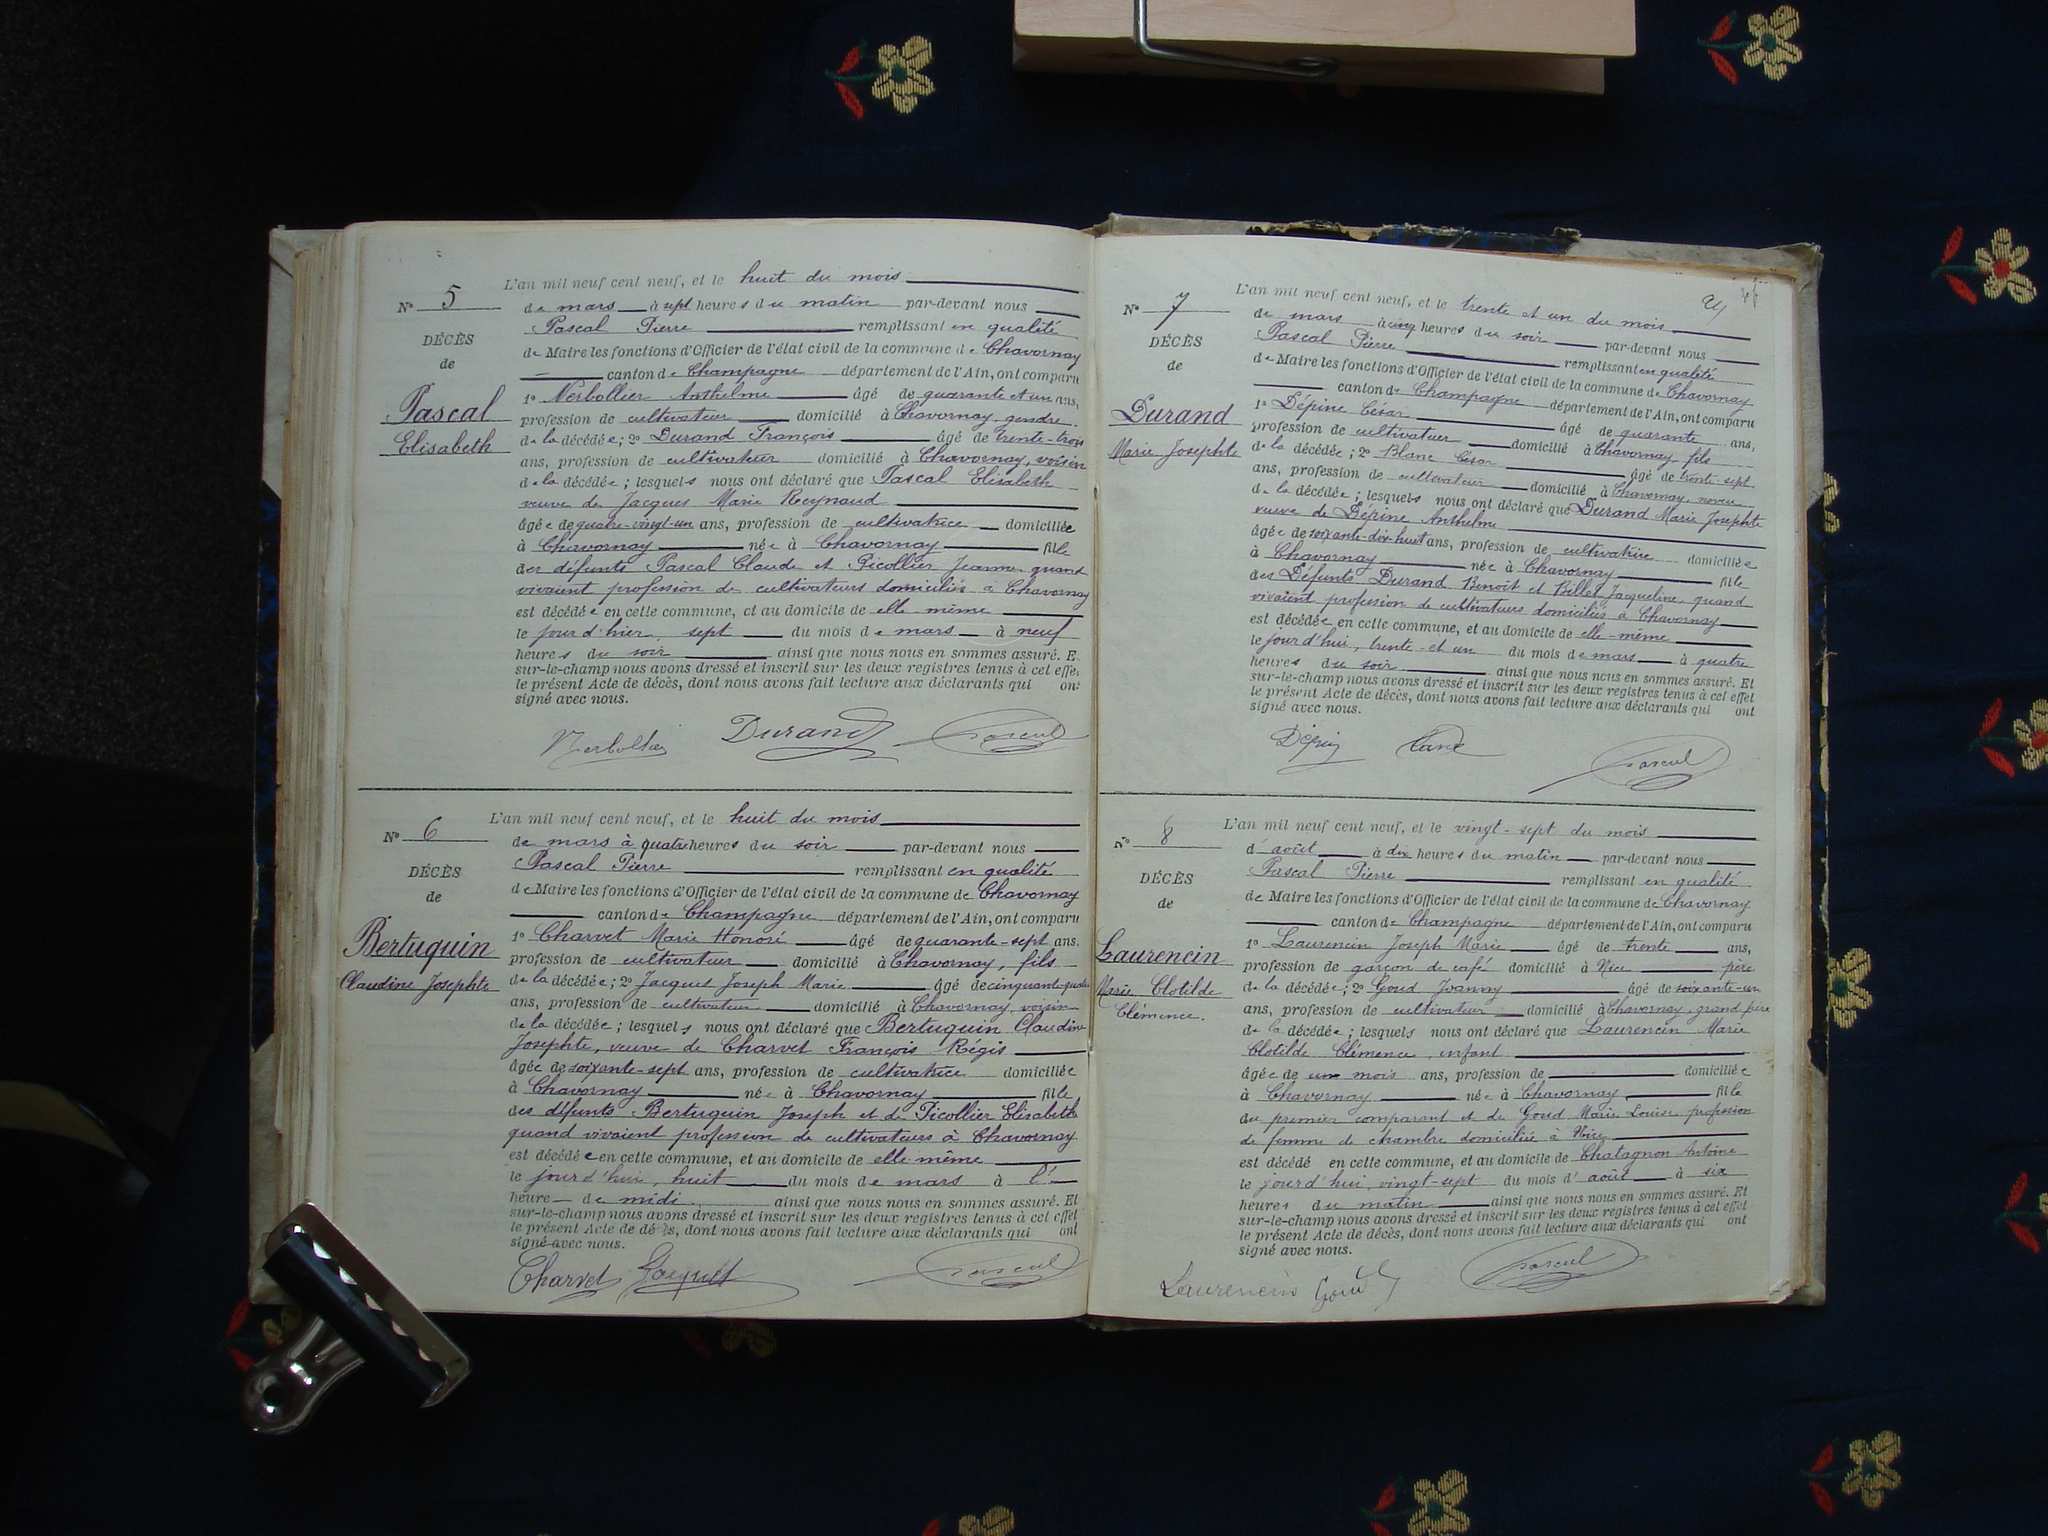 L'an mil neuf cent neuf, et le huit du mois
N° 5
de mars à sept heures du matin par-devant nous
Pascal Pierre remplissant en qualité
DÉCÈS
de Maire les fonctions d'Officier de l'état civil de la commune de Chavornay
de
canton de Champagne département de l'Ain, ont comparu
Pascal
Elisabeth
1° Nerbollier Anthelme âgé de quarante et un ans,
profession de cultivateur domicilié à Chavornay, gendre
de la décédée; 2° Durand François âgé de trente-trois
ans, profession de cultivateur domicilié à Chavornay, voisin
de la décédée; lesquels nous ont déclaré que Pascal Elisabeth
veuve de Jacques Marie Reynaud
âgée de quatre-vingt-un ans, profession de cultivatrice domiciliée
à Chavornay née à Chavornay fille
des défunts Pascal Claude et Picollier Jeanne quand
vivaient profession de cultivateurs domiciliés à Chavornay
est décédée en cette commune, et au domicile de elle même
le jour d'hier, sept du mois de mars à neuf
heures du soir ainsi que nous nous en sommes assuré. E
sur-le-champ nous avons dressé et inscrit sur les deux registres tenus à cet effet
le présent Acte de décès, dont nous avons fait lecture aux déclarants qui ont
signé avec nous.
Nerbollier Durand Pascal
L'an mil neuf cent neuf, et le huit du mois
N° 6
de mars à quatre heures du soir par-devant nous
Pascal Pierre remplissant en qualité
DÉCÈS
de Maire les fonctions d'Officier de l'état civil de la commune de Chavornay
de
canton de Champagne département de l'Ain, ont comparu
Bertuquin
Claudine Josephte
1° Charvet Marie Honoré âgé de quarante-sept ans.
profession de cultivateur domicilié à Chavornay, fils
de la décédée; 2° Jacquet Joseph Marie âgé de cinquante-quatre
ans, profession de cultivateur domicilié à Chavornay voisin
de la décédée; lesquels nous ont déclaré que Bertuquin Claudine
Josephte, veuve de Charvet François Régis
âgée de soixante-sept ans, profession de cultivatrice domiciliée
à Chavornay née à Chavornay fille
des défunts Bertuquin Joseph et de Picollier Elisabeth
quand vivaient profession de cultivateurs à Chavornay
est décédée en cette commune, et au domicile de elle-même
le jour d'hui, huit du mois de mars à l'
heure de midi ainsi que nous nous en sommes assuré. Et
sur-le-champ nous avons dressé et inscrit sur les deux registres tenus à cet effet
le présent Acte de décès, dont nous avons fait lecture aux déclarants qui ont
signé avec nous.
Charvet Jacquet Pascal
L'an mil neuf cent neuf, et le trente et un du mois
N° 7
de mars à cinq heures du soir par-devant nous
Pascal Pierre remplissant en qualité
DÉCÈS
de Maire les fonctions d'Officier de l'état civil de la commune de Chavornay
de
canton de Champagne département de l'Ain, ont comparu
Durand
Marie Josephte
1° Dépine César âgé de quarante ans,
profession de cultivateur domicilié à Chavornay, fils
de la décédée; 2° Blanc César âgé de trente-sept
ans, profession de cultivateur domicilié à Chavornay, neveu
de la décédée; lesquels nous ont déclaré que Durand Marie Josephte
veuve de Dépine Anthelme
âgée de soixante-dix-huit ans, profession de cultivatrice domiciliée
à Chavornay née à Chavornay fille
des Défunts Durand Benoit et Billet Jacqueline, quand
vivaient profession de cultivateurs domiciliés à Chavornay
est décédée en cette commune, et au domicile de elle-même
le jour d'hui, trente-et un du mois de mars à quatre
heures du soir ainsi que nous nous en sommes assuré. Et
sur-le-champ nous avons dressé et inscrit sur les deux registres tenus à cet effet
le présent Acte de décès, dont nous avons fait lecture aux déclarants qui ont
signé avec nous.
Pascal
L'an mil neuf cent neuf, et le vingt-sept du mois
N° 8
d'août à dix heures du matin par-devant nous
Pascal Pierre remplissant en qualité
DÉCÈS
de Maire les fonctions d'Officier de l'état civil de la commune de Chavornay
de
canton de Champagne département de l'Ain, ont comparu
Laurencin
Marie Clotilde
Clémence.
1° Laurencin Joseph Marie âgé de trente ans,
profession de garçon de café domicilié à Nice père
de la décédée; 2° Goud Joanny âgé de soixante-un
ans, profession de cultivateur domicilié à Chavornay, grand père
de la décédée; lesquels nous ont déclaré que Laurencin Marie
Clotilde Clémence, enfant
âgée de un mois ans, profession de domiciliée
à Chavornay née à Chavornay fille
du premier comparant et de Goud Marie Louise profession
de femme de chambre domiciliée à Nice
est décédé en cette commune, et au domicile de Chatagnon Antoine
le jour d'hui, vingt-sept du mois d'août à six
heures du matin ainsi que nous nous en sommes assuré. Et
sur-le-champ nous avons dressé et inscrit sur les deux registres tenus à cet effet
le présent Acte de décès, dont nous avons fait lecture aux déclarants qui ont
signé avec nous.
Laurencin Goud Pascal